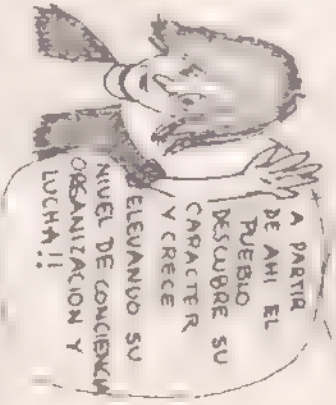 A PARTIR
DE AHI EL
PUEBLO
DESCUBRE SU
CARACTER
Y CRECE
ELEVANDO SU
NIVEL DE CONCIENCIA
ORGANIZACION Y
LUCHA!!